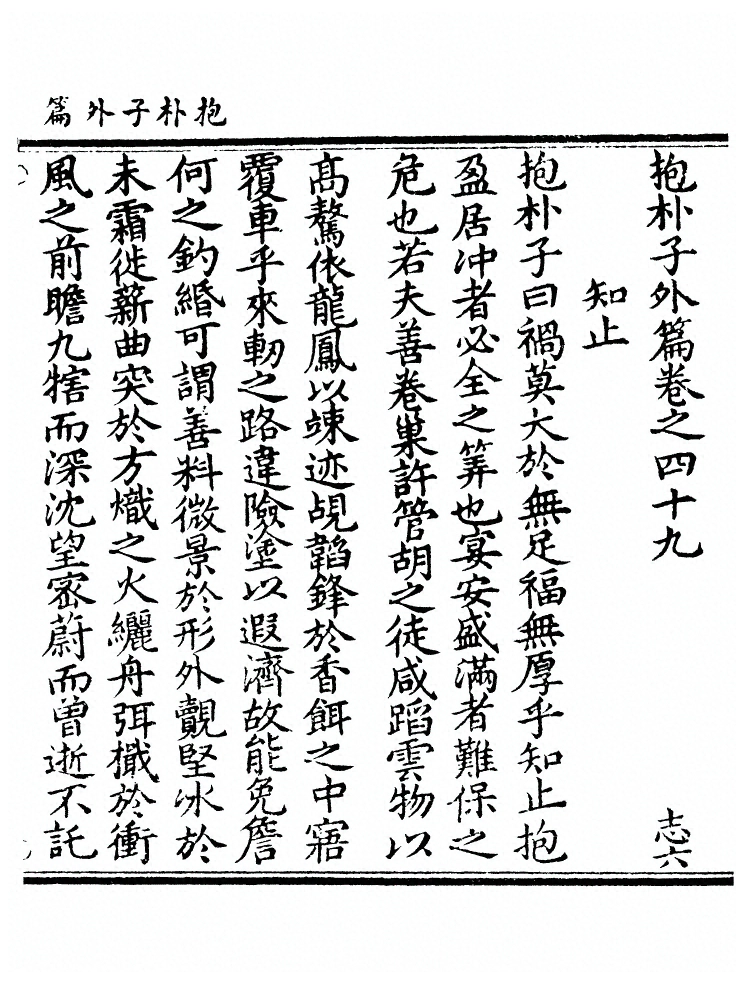 抱朴子外篇
抱朴子外篇卷之四十九 志六
知止
抱朴子曰禍莫大於無足福無厚乎知止抱
盈居冲者必全之筭也宴安盛滿者難保之
危也若夫善卷巢許管胡之徒咸蹈雲物以
高騖依龍鳳以竦迹覘韜鋒於香餌之中寤
覆車乎來軔之路違險塗以遐濟故能免詹
何之釣緡可謂善料微景於形外覿堅冰於
未霜徙薪曲突於方熾之火纚舟弭檝於衝
風之前瞻九犗而深沈望密蔚而曾逝不託